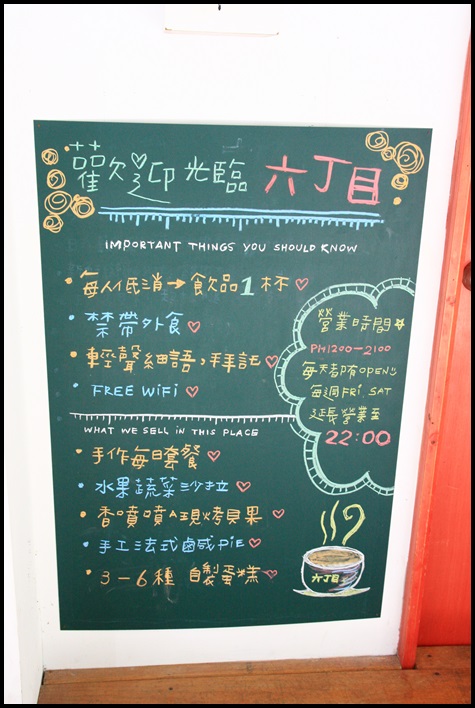 歡迎光臨 六丁目
IMPORTANT THINGS YOU SHOULD KNOW
• 每人低消→飲品1杯♡
• 禁帶外食♡
• 輕聲細語,拜託♡
• FREE WiFi♡
營業時間☆
PM1200-2100
每天都有OPEN
每週FRI, SAT
延長營業至
22:00
WHAT WE SELL IN THIS PLACE
• 手作每日套餐♡
• 水果蔬菜沙拉♡
• 香噴噴ㄟ現烤貝果♡
• 手工法式鹵咸PIE♡
• 3-6種 自製蛋糕♡
六丁目